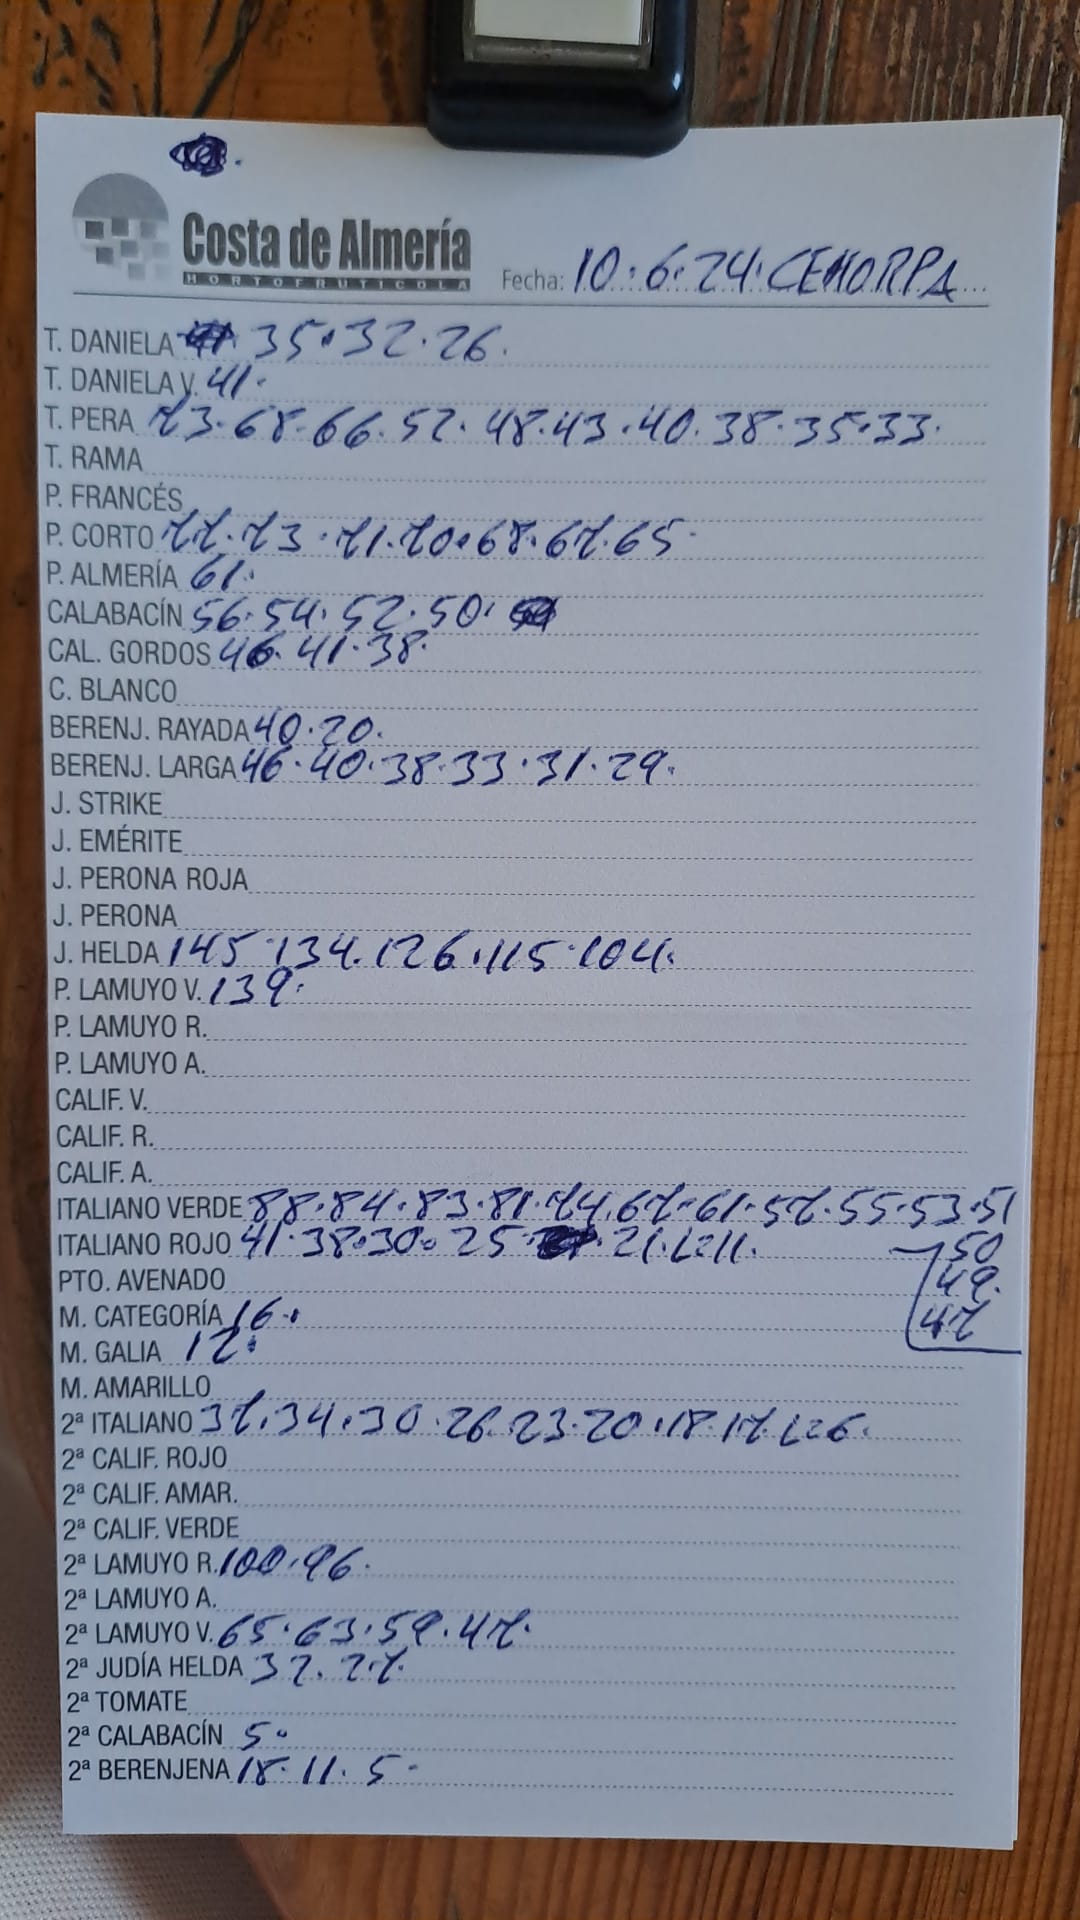 Costa de Almería
HORTOFRUTICOLA
Fecha: 10.6.24. CEHORPA
T. DANIELA 35.32.26.
T. DANIELA V. 41.
T. PERA 73.68.66.52.48.43.40.38.35.33.
T. RAMA
P. FRANCÉS
P. CORTO 77.73.71.70.68.67.65.
P. ALMERÍA 61.
CALABACÍN 56.54.52.50.
CAL. GORDOS 46.41.38.
C. BLANCO
BERENJ. RAYADA 40.20.
BERENJ. LARGA 46.40.38.33.31.29.
J. STRIKE
J. EMÉRITE
J. PERONA ROJA
J. PERONA
J. HELDA 145.134.126.115.104.
P. LAMUYO V. 139.
P. LAMUYO R.
P. LAMUYO A.
CALIF. V.
CALIF. R.
CALIF. A.
ITALIANO VERDE 88.84.83.81.74.67.61.57.55.53.51
ITALIANO ROJO 41.38.30.25.21.L=11. 50
PTO. AVENADO 49.
M. CATEGORÍA 16. 47
M. GALIA 12.
M. AMARILLO
2ª ITALIANO 37.34.30.26.23.20.18.17.L=6.
2ª CALIF. ROJO
2ª CALIF. AMAR.
2ª CALIF. VERDE
2ª LAMUYO R. 100.96.
2ª LAMUYO A.
2ª LAMUYO V. 65.63.59.47.
2ª JUDÍA HELDA 32.27.
2ª TOMATE
2ª CALABACÍN 5.
2ª BERENJENA 18.11.5.